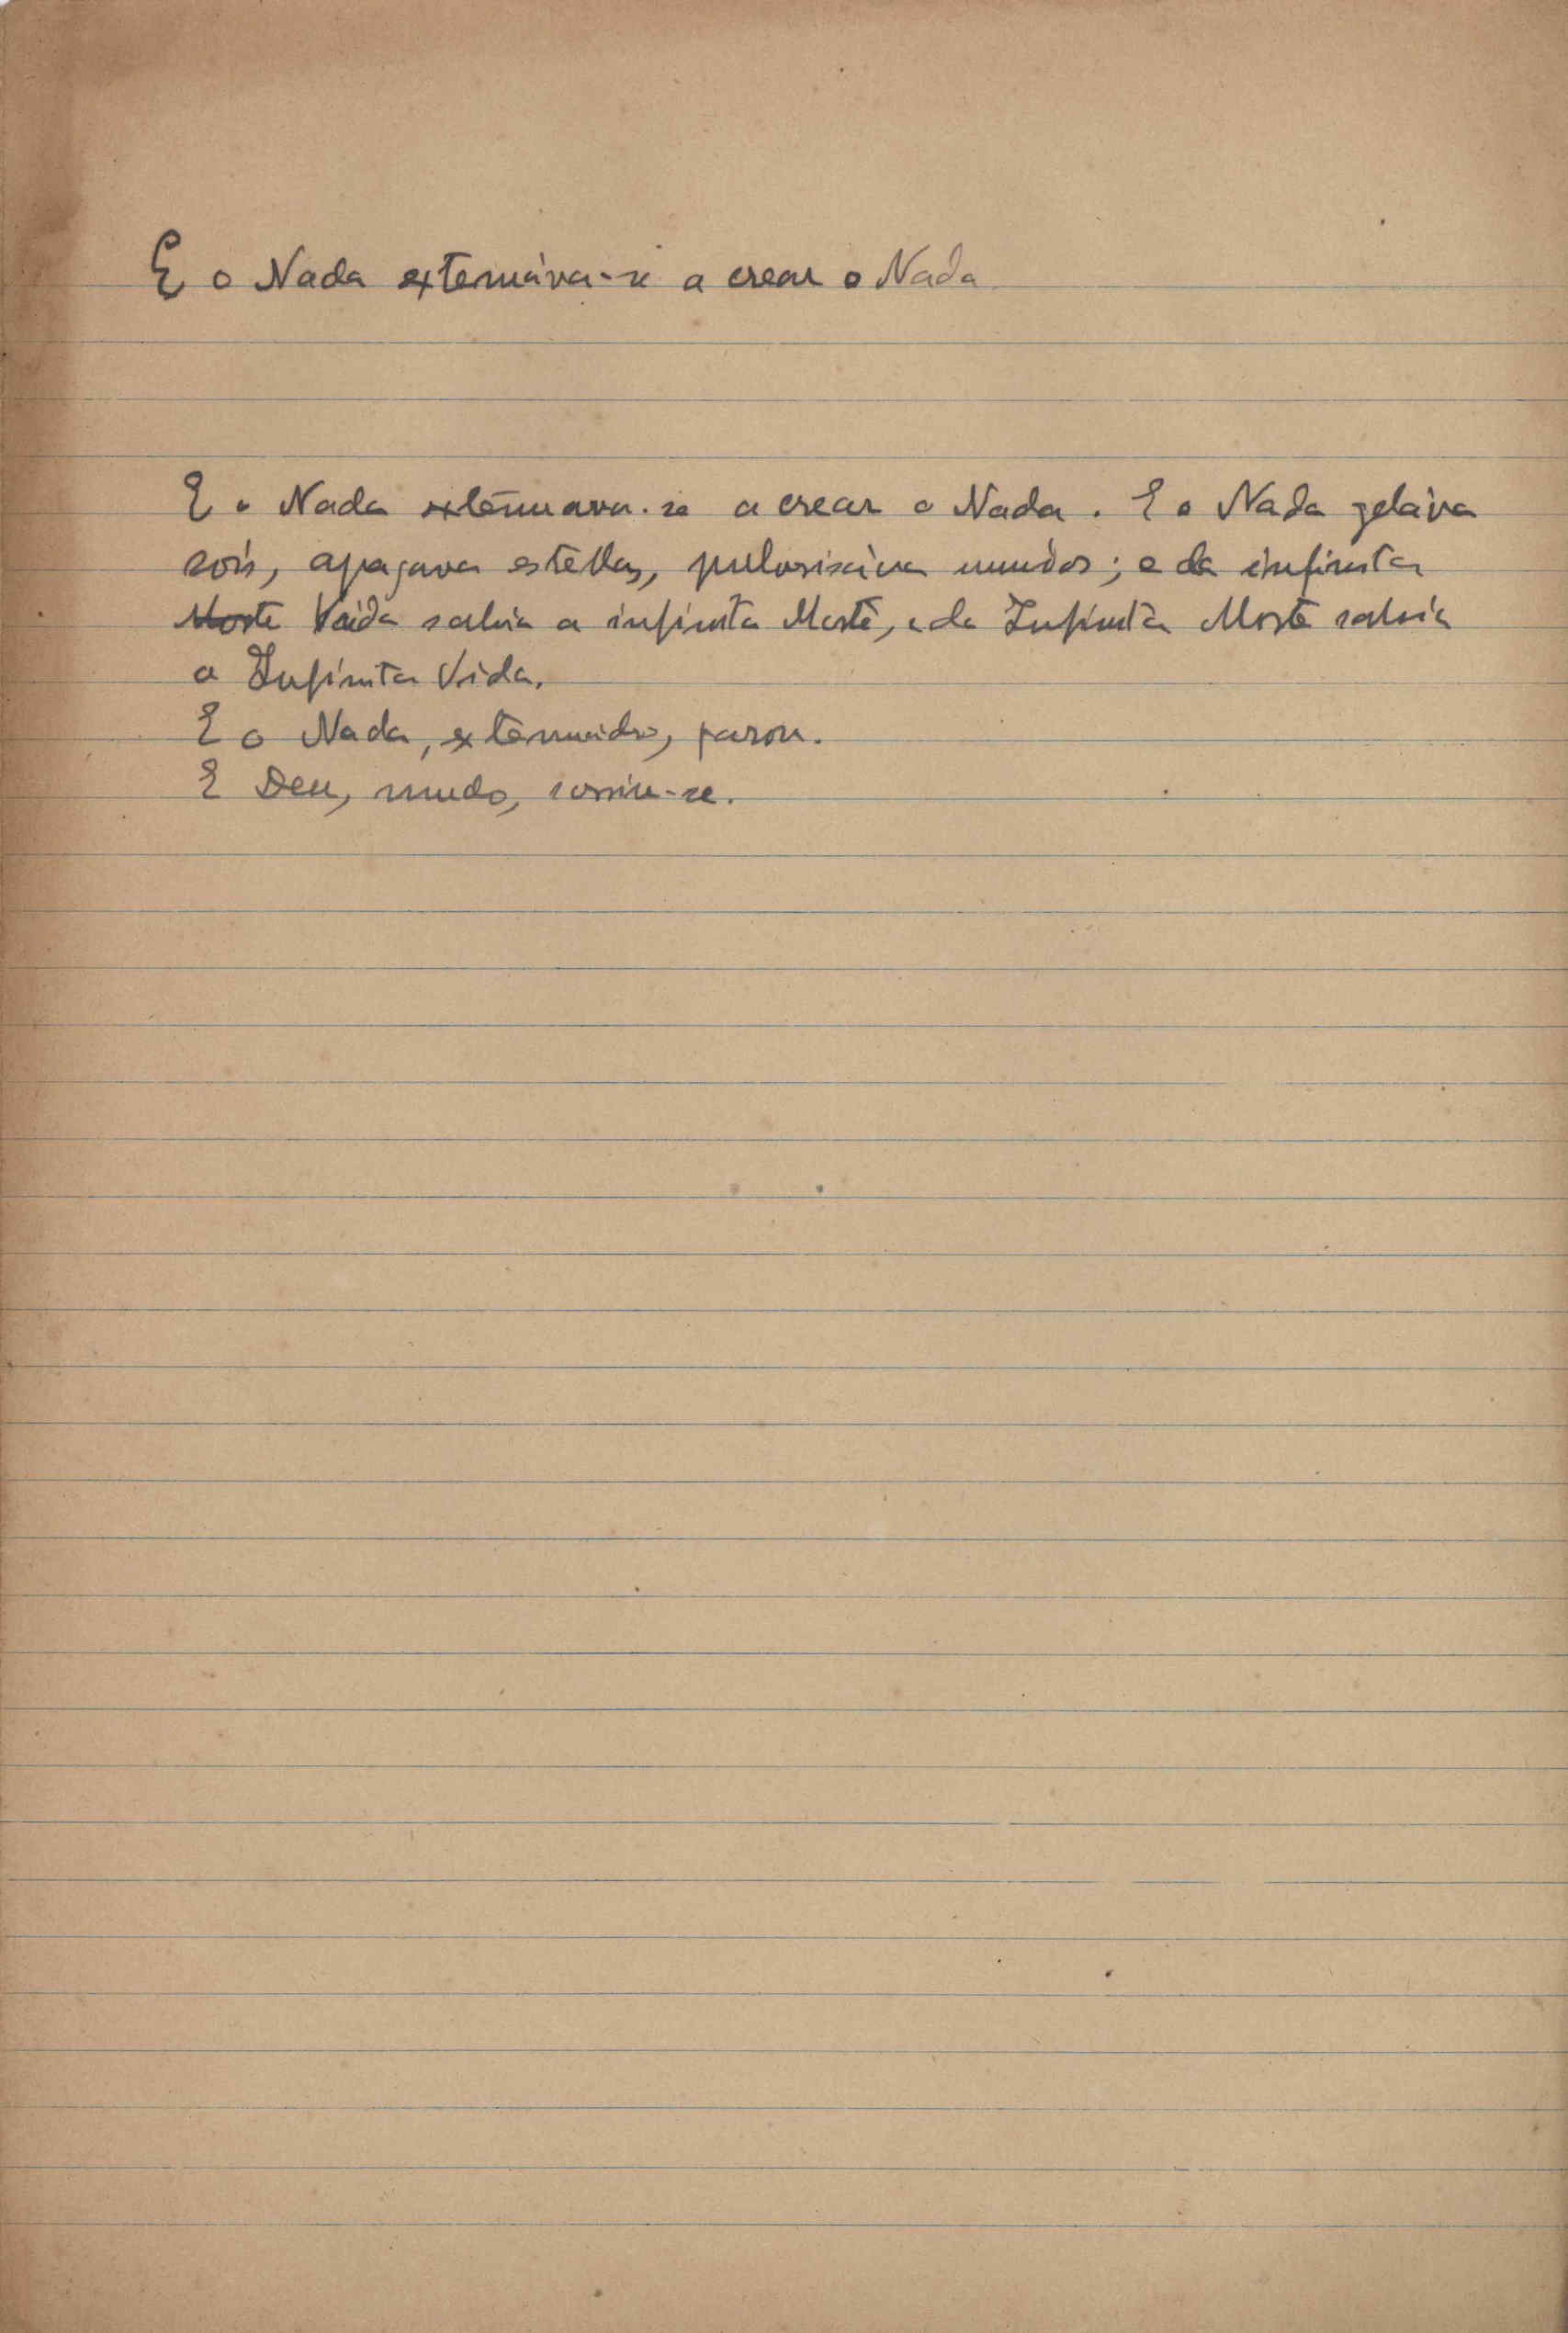 E o Nada extenuáva-se a crear o Nada
E o Nada extenuava-se a crear o Nada. E o Nada gelava
sóis, apagava estellas, pulverisáva mundos; e da infinita
Morte Vida sahia a infinita Morte, e da Infinita Morte sahia
a Infinita Vida.
E o Nada, extenuado, parou.
E Deu, mudo, sorriu-se.